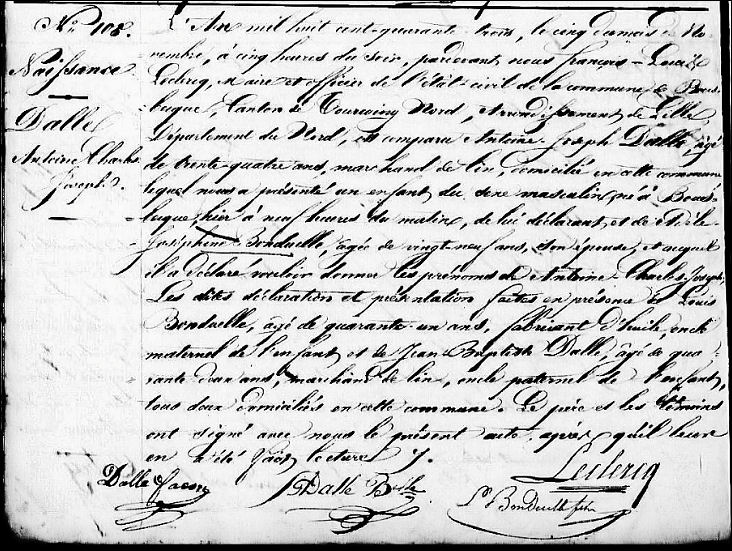 N° 108.
Naissance
Dalle
Antoine Charles
Joseph.
L'An mil huit cent quarante trois, le cinq du mois de No-
vembre, à cinq heures du soir, pardevant nous françois-Louis
Leclercq, Maire et officier de l'état-civil de la commune de Bous-
becque, Canton de Tourcoing Nord, Arrondissement de Lille,
Département du Nord, est comparu Antoine-Joseph Dalle, âgé
de trente quatre ans, marchand de lin, domicilié en cette commune
lequel nous a présenté un enfant du sexe masculin, né à Bous-
becque, hier à neuf heures du matin, de lui déclarant, et de Adèle-
Joséphine Bonduelle, âgée de vingt neuf ans, son épouse, et auquel
il a déclaré vouloir donner les prénoms de Antoine-Charles-Joseph,
Les dites déclaration et présentation faites en présence de Louis
Bonduelle, âgé de quarante-un ans, fabricant d'huile, oncle
maternel de l'enfant et de Jean-Baptiste Dalle, âgé de qua-
rante deux ans, marchand de lin, oncle paternel de l'enfant,
tous deux domiciliés en cette commune. Le père et les témoins
ont signé avec nous le présent acte, après qu'il leur
en a été fait lecture.
Dalle
Dalle
Leclercq
Ls Bonduelle fils